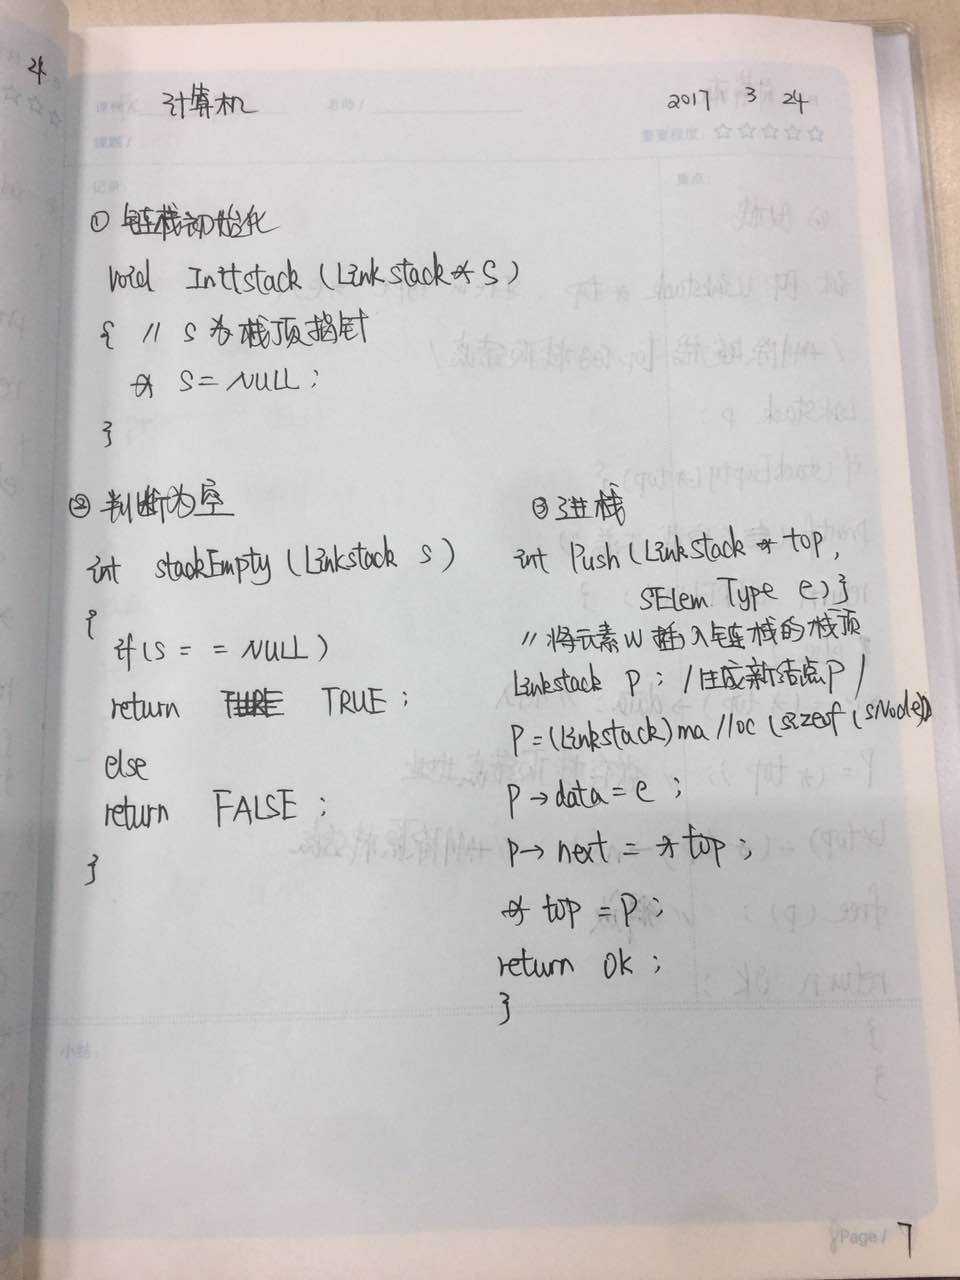 24
计算机
2017 3 24
重要程度:
记录:
重点:
① 链栈初始化
void Initstack (Linkstack * S)
{ // S为栈顶指针
* S = NULL ;
}
② 判断为空
int stackEmpty (Linkstack s)
{
if (S = = NULL)
return TRUE ;
else
return FALSE ;
}
③ 进栈
int Push (Linkstack * top ,
SElem Type e) }
// 将元素w插入链栈的栈顶
Linkstack P ; /生成新结点P /
P = (Linkstack) malloc (sizeof (SNode))
P → data = e ;
P → next = * top ;
* top = P ;
return OK ;
}
小结:
Page / 7